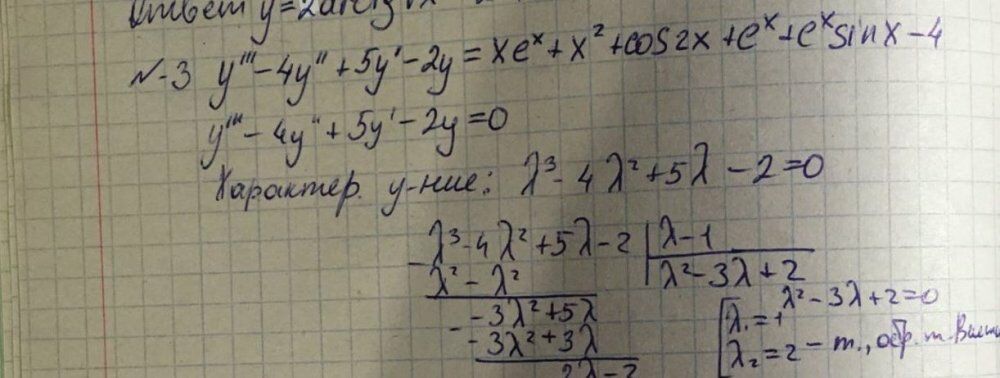 Ответ y=2
№3 y''' - 4y'' + 5y' - 2y = xeˣ + x² + cos2x + eˣ + eˣsinx - 4
y''' - 4y'' + 5y' - 2y = 0
Характер. у-ние: λ³ - 4λ² + 5λ - 2 = 0
λ³ - 4λ² + 5λ - 2 | λ - 1
λ² - λ² | λ² - 3λ + 2
- -3λ² + 5λ λ² - 3λ + 2 = 0
-3λ² + 3λ [ λ₁ = 1
2λ - 2 λ₂ = 2 - т., обр. т. Виета